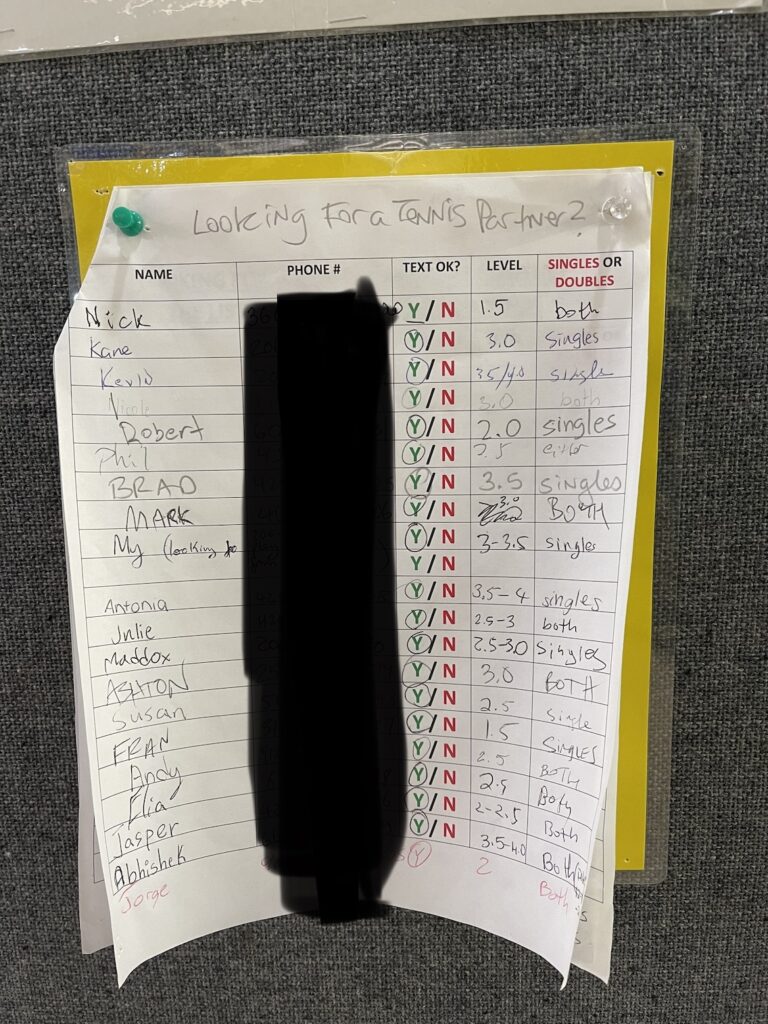 Looking For a Tennis Partner?
NAME PHONE # TEXT OK? LEVEL SINGLES OR DOUBLES
Nick Y / N 1.5 both
Kane Y / N 3.0 Singles
Kevin Y / N 3.5/4.0 single
Nicole Y / N 3.0 both
Robert Y / N 2.0 singles
Phil Y / N either
BRAD Y / N 3.5 singles
MARK Y / N 3.0 BOTH
My (looking for Y / N 3-3.5 singles
Y / N
Antonia Y / N 3.5-4 singles
Julie Y / N 2.5-3 both
Maddox Y / N 2.5-3.0 Singles
ASHTON Y / N 3.0 BOTH
Susan Y / N 2.5 Single
FRAN Y / N 1.5 SINGLES
Andy Y / N 2.5 BOTH
Elia Y / N 2.5 Both
Jasper Y / N 2-2.5 Both
Abhishek Y / N 3.5-4.0 Both
Jorge Y 2 Both